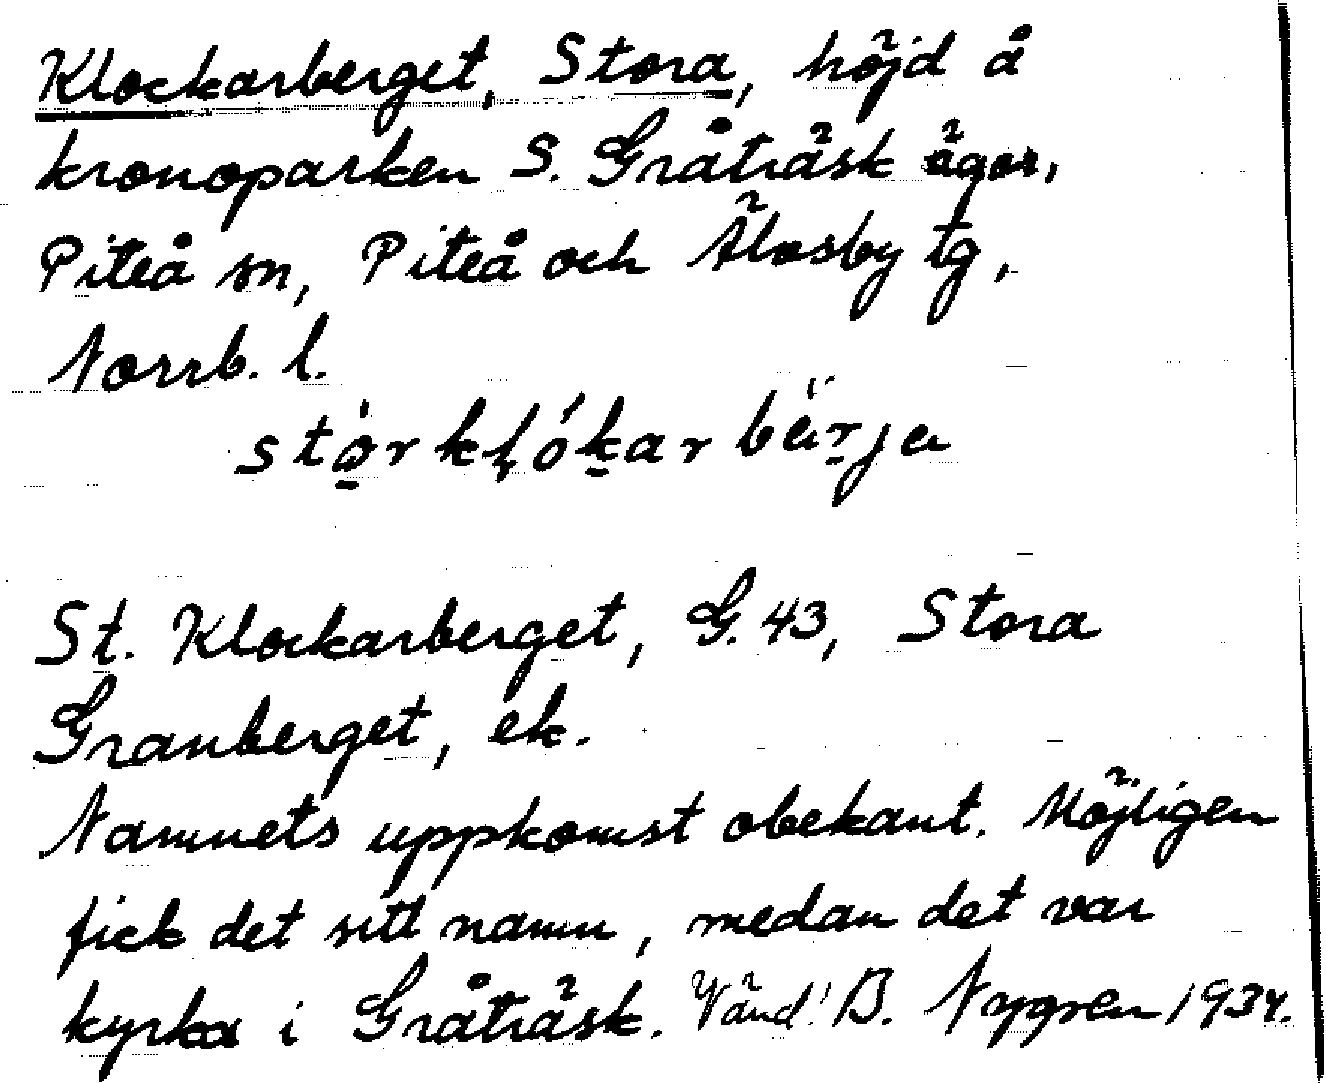 Klockarberget, Stora, höjd å
kronoparken S. Gråträsk ägor,
Piteå sn, Piteå och Älvsby tg,
Norrb. l.
stọrkḷókarbärja
St. Klockarberget, G. 43, Stora
Granberget, ek.
Namnets uppkomst obekant. Möjligen
fick det sitt namn, medan det var
kyrka i Gråträsk. Vänd! B. Nygren 1934.